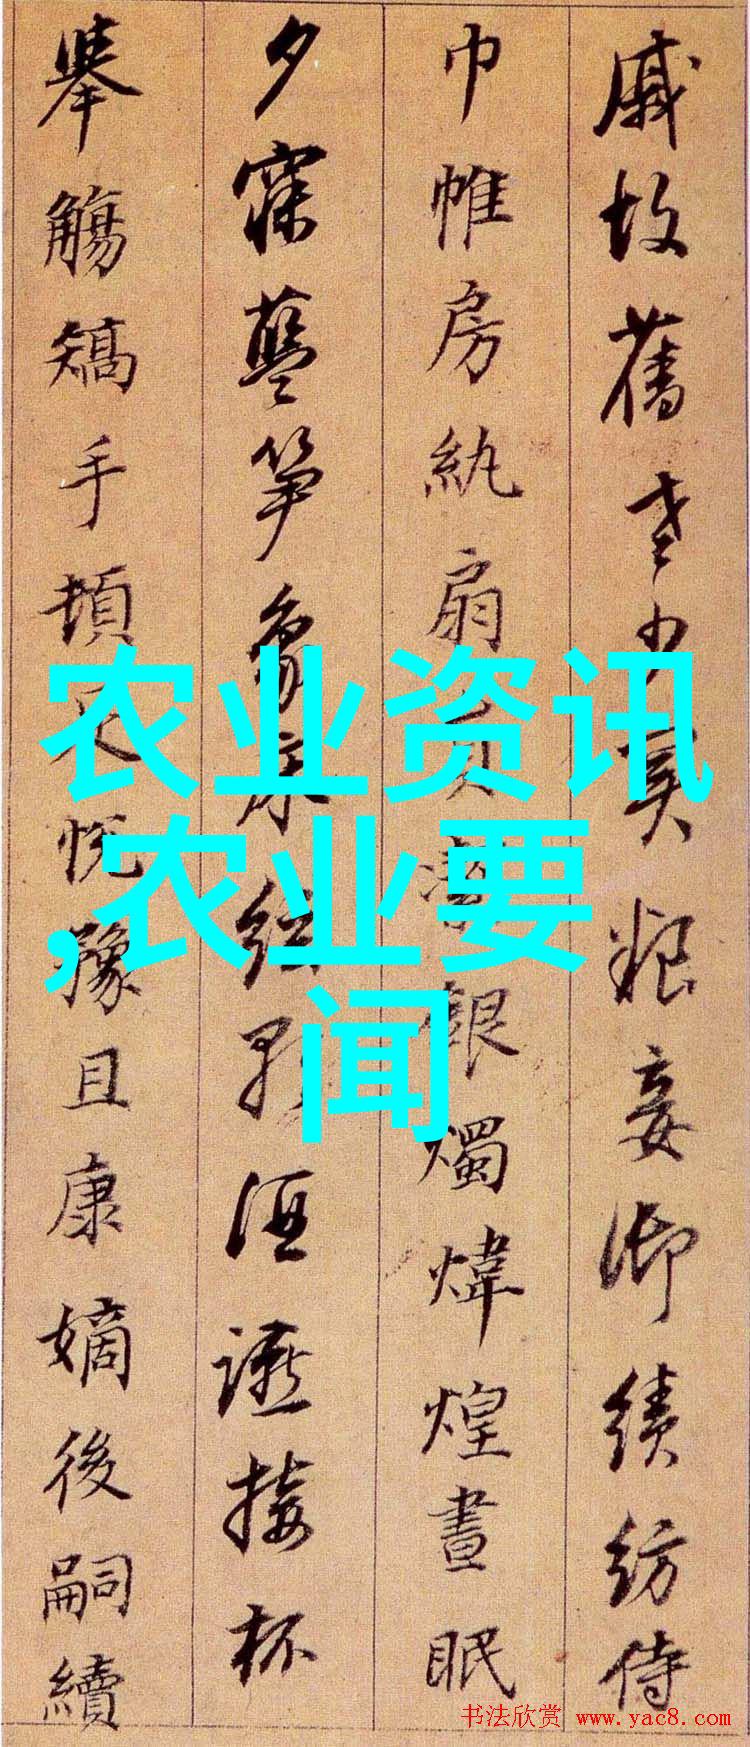 戚故舊老少異粮妾御績紡侍
巾帷房紈扇員潔銀燭煒煌晝眠
夕寐藍筍象床絃歌酒讌接杯
舉觴矯手頓足悅豫且康嫡後嗣續
农业资讯
,农业要
闻
书法欣赏 www.yac8.com